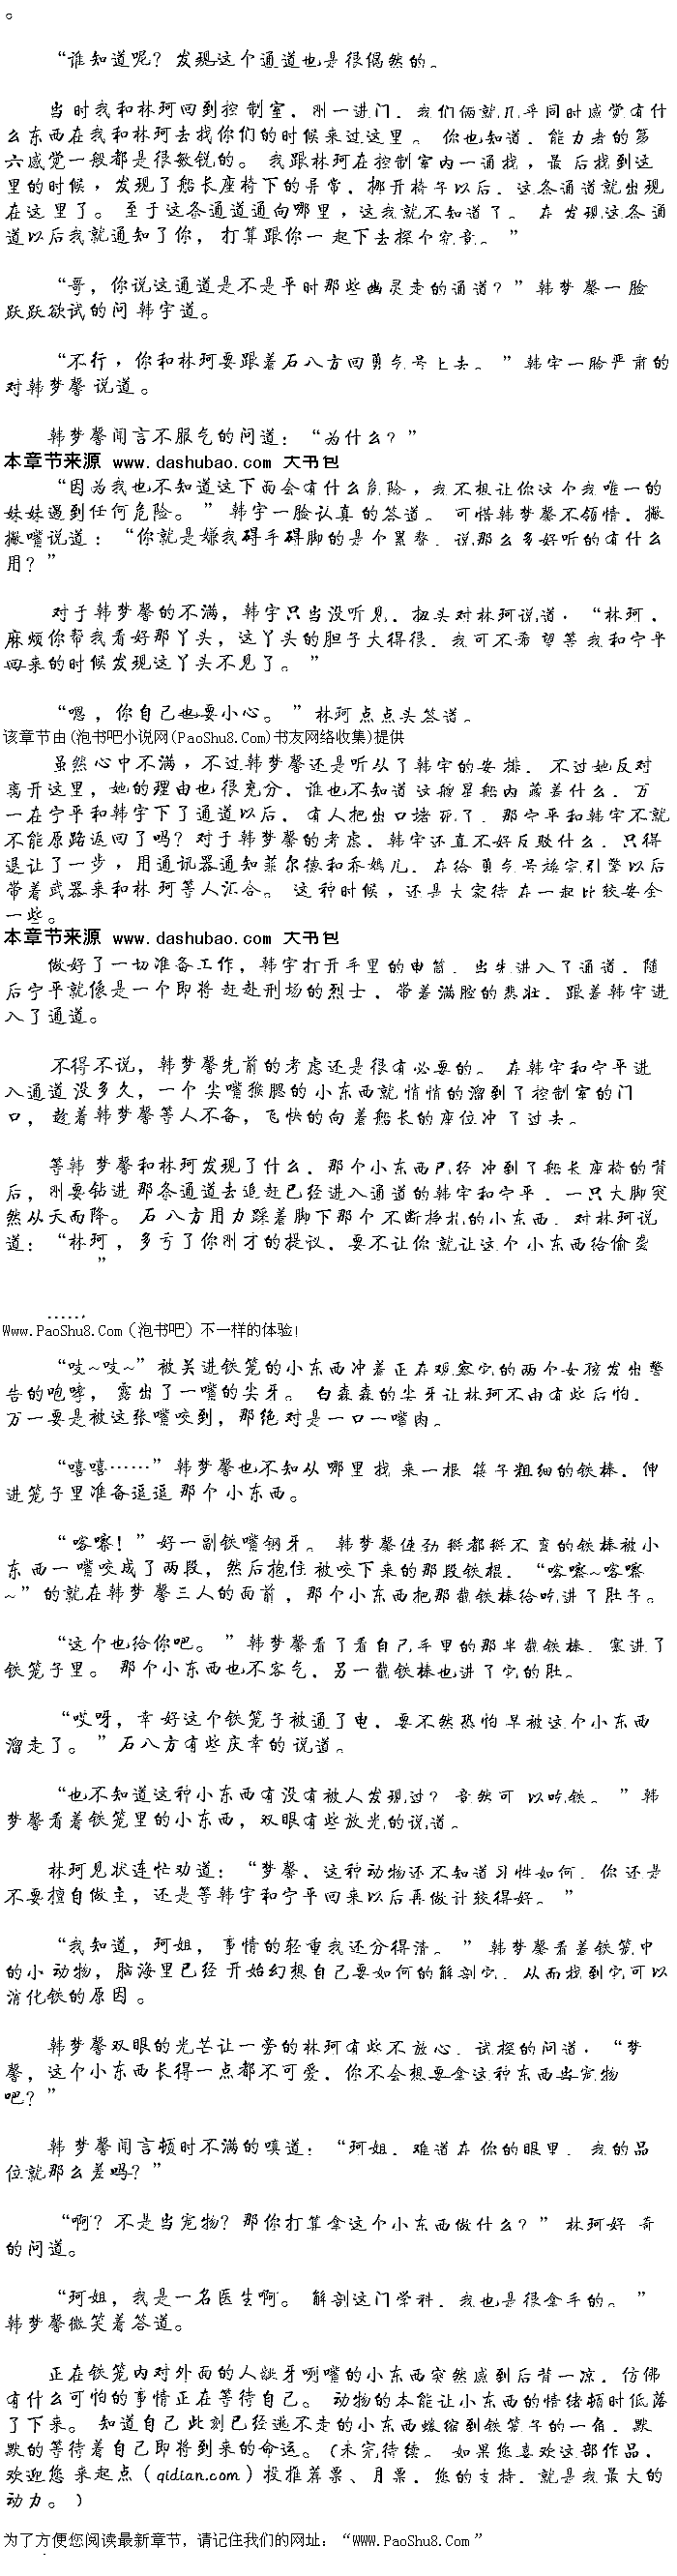 。
“谁知道呢？发现这个通道也是很偶然的。
当时我和林珂回到控制室，刚一进门，我们俩就几乎同时感觉有什
么东西在我和林珂去找你们的时候来过这里。你也知道，能力者的第
六感觉一般都是很敏锐的。我跟林珂在控制室内一通找，最后找到这
里的时候，发现了船长座椅下的异常，挪开椅子以后，这条通道就出现
在这里了。至于这条通道通向哪里，这我就不知道了。在发现这条通
道以后我就通知了你，打算跟你一起下去探个究竟。”
“哥，你说这通道是不是平时那些幽灵走的通道？”韩梦馨一脸
跃跃欲试的问韩宇道。
“不行，你和林珂要跟着石八方回勇气号上去。”韩宇一脸严肃的
对韩梦馨说道。
韩梦馨闻言不服气的问道：“为什么？”
本章节来源 www.dashubao.com 大书包
“因为我也不知道这下面会有什么危险，我不想让你这个我唯一的
妹妹遇到任何危险。”韩宇一脸认真的答道。可惜韩梦馨不领情，撇
撇嘴说道：“你就是嫌我碍手碍脚的是个累赘，说那么多好听的有什么
用？”
对于韩梦馨的不满，韩宇只当没听见，扭头对林珂说道：“林珂，
麻烦你帮我看好那丫头，这丫头的胆子大得很，我可不希望等我和宁平
回来的时候发现这丫头不见了。”
“嗯，你自己也要小心。”林珂点点头答道。
该章节由(泡书吧小说网(PaoShu8.Com)书友网络收集)提供
虽然心中不满，不过韩梦馨还是听从了韩宇的安排，不过她反对
离开这里，她的理由也很充分，谁也不知道这艘星船内藏着什么，万
一在宁平和韩宇下了通道以后，有人把出口堵死了，那宁平和韩宇不就
不能原路返回了吗？对于韩梦馨的考虑，韩宇还真不好反驳什么，只得
退让了一步，用通讯器通知菲尔德和乔嫣儿，在给勇气号装完引擎以后
带着武器来和林珂等人汇合。这种时候，还是大家待在一起比较安全
一些。
本章节来源 www.dashubao.com 大书包
做好了一切准备工作，韩宇打开手里的电筒，当先进入了通道，随
后宁平就像是一个即将赶赴刑场的烈士，带着满脸的悲壮，跟着韩宇进
入了通道。
不得不说，韩梦馨先前的考虑还是很有必要的。在韩宇和宁平进
入通道没多久，一个尖嘴猴腮的小东西就悄悄的溜到了控制室的门
口，趁着韩梦馨等人不备，飞快的向着船长的座位冲了过去。
等韩梦馨和林珂发现了什么，那个小东西已经冲到了船长座椅的背
后，刚要钻进那条通道去追赶已经进入通道的韩宇和宁平，一只大脚突
然从天而降。石八方用力踩着脚下那个不断挣扎的小东西，对林珂说
道：“林珂，多亏了你刚才的提议，要不让你就让这个小东西给偷袭
”
……
Www.PaoShu8.Com（泡书吧）不一样的体验！
“吱~吱~”被关进铁笼的小东西冲着正在观察它的两个女孩发出警
告的咆哮，露出了一嘴的尖牙。白森森的尖牙让林珂不由有些后怕，
万一要是被这张嘴咬到，那绝对是一口一嘴肉。
“嘻嘻……”韩梦馨也不知从哪里找来一根筷子粗细的铁棒，伸
进笼子里准备逗逗那个小东西。
“喀嚓！”好一副铁嘴钢牙。韩梦馨使劲掰都掰不弯的铁棒被小
东西一嘴咬成了两段，然后抱住被咬下来的那段铁棍，“喀嚓~喀嚓
~”的就在韩梦馨三人的面前，那个小东西把那截铁棒给吃进了肚子。
“这个也给你吧。”韩梦馨看了看自己手里的那半截铁棒，塞进了
铁笼子里。那个小东西也不客气，另一截铁棒也进了它的肚。
“哎呀，幸好这个铁笼子被通了电，要不然恐怕早被这个小东西
溜走了。”石八方有些庆幸的说道。
“也不知道这种小东西有没有被人发现过？竟然可以吃铁。”韩
梦馨看着铁笼里的小东西，双眼有些放光的说道。
林珂见状连忙劝道：“梦馨，这种动物还不知道习性如何，你还是
不要擅自做主，还是等韩宇和宁平回来以后再做计较得好。”
“我知道，珂姐，事情的轻重我还分得清。”韩梦馨看着铁笼中
的小动物，脑海里已经开始幻想自己要如何的解剖它，从而找到它可以
消化铁的原因。
韩梦馨双眼的光芒让一旁的林珂有些不放心，试探的问道：“梦
馨，这个小东西长得一点都不可爱，你不会想要拿这种东西当宠物
吧？”
韩梦馨闻言顿时不满的嗔道：“珂姐，难道在你的眼里，我的品
位就那么差吗？”
“啊？不是当宠物？那你打算拿这个小东西做什么？”林珂好奇
的问道。
“珂姐，我是一名医生啊。解剖这门学科，我也是很拿手的。”
韩梦馨微笑着答道。
正在铁笼内对外面的人龇牙咧嘴的小东西突然感到后背一凉，仿佛
有什么可怕的事情正在等待自己。动物的本能让小东西的情绪顿时低落
了下来。知道自己此刻已经逃不走的小东西蜷缩到铁笼子的一角，默
默的等待着自己即将到来的命运。（未完待续。如果您喜欢这部作品，
欢迎您来起点（qidian.com）投推荐票、月票，您的支持，就是我最大的
动力。）
为了方便您阅读最新章节，请记住我们的网址：“WWW.PaoShu8.Com”